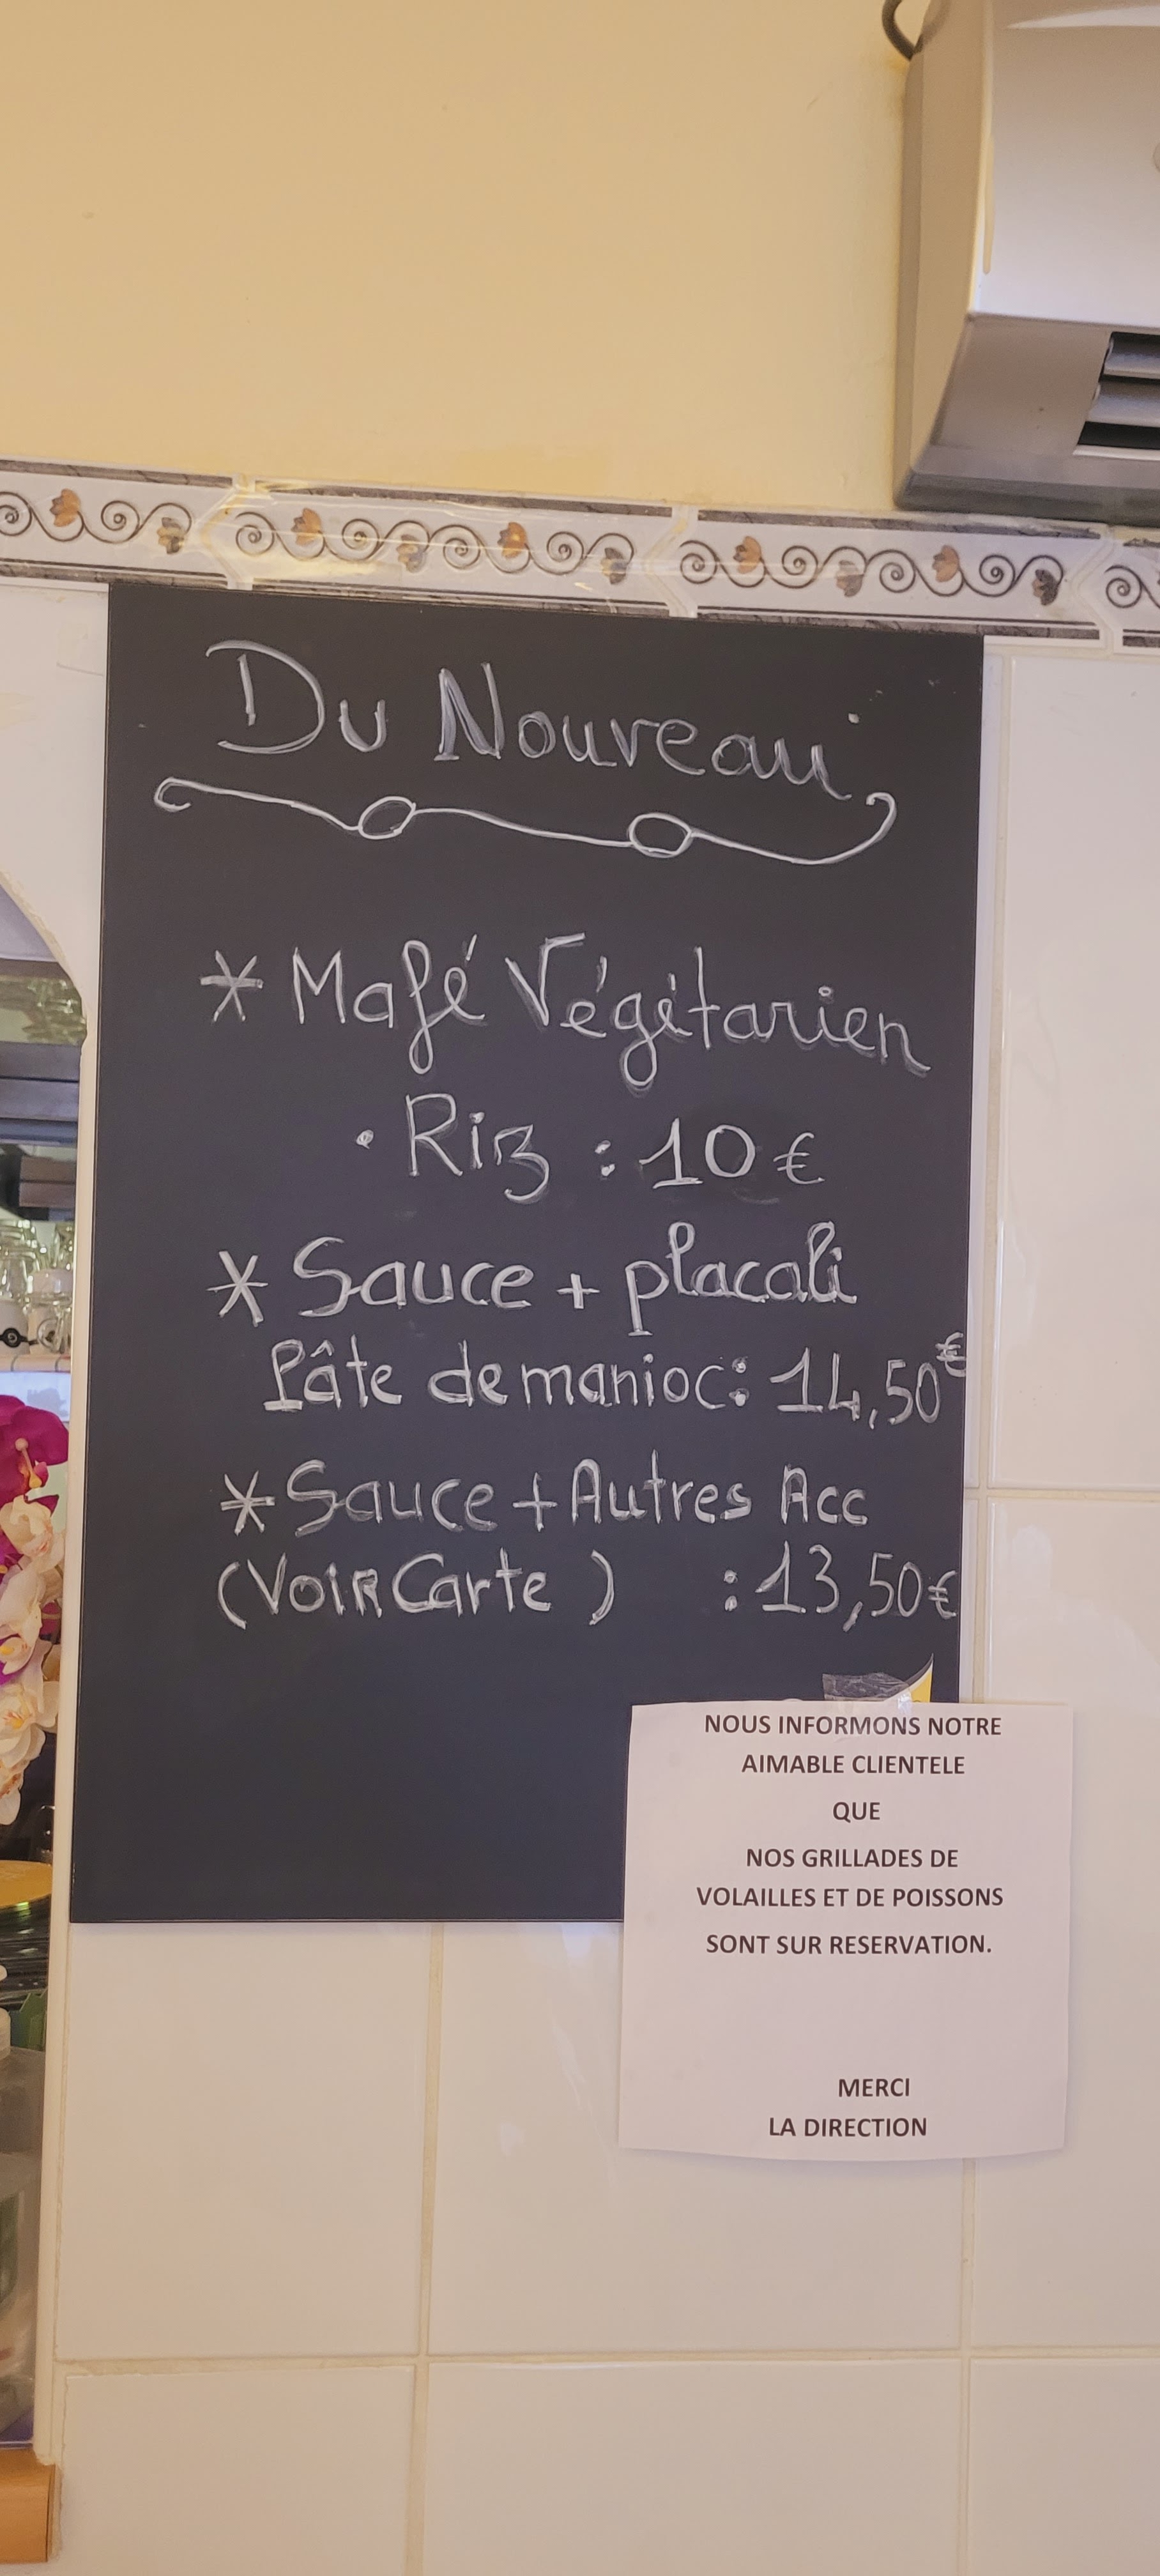 Du Nouveau
* Mafé Végétarien
· Riz : 10 €
* Sauce + placali
Pâte de manioc : 14,50 €
* Sauce + Autres Acc
(Voir Carte) : 13,50 €
NOUS INFORMONS NOTRE
AIMABLE CLIENTELE
QUE
NOS GRILLADES DE
VOLAILLES ET DE POISSONS
SONT SUR RESERVATION.
MERCI
LA DIRECTION